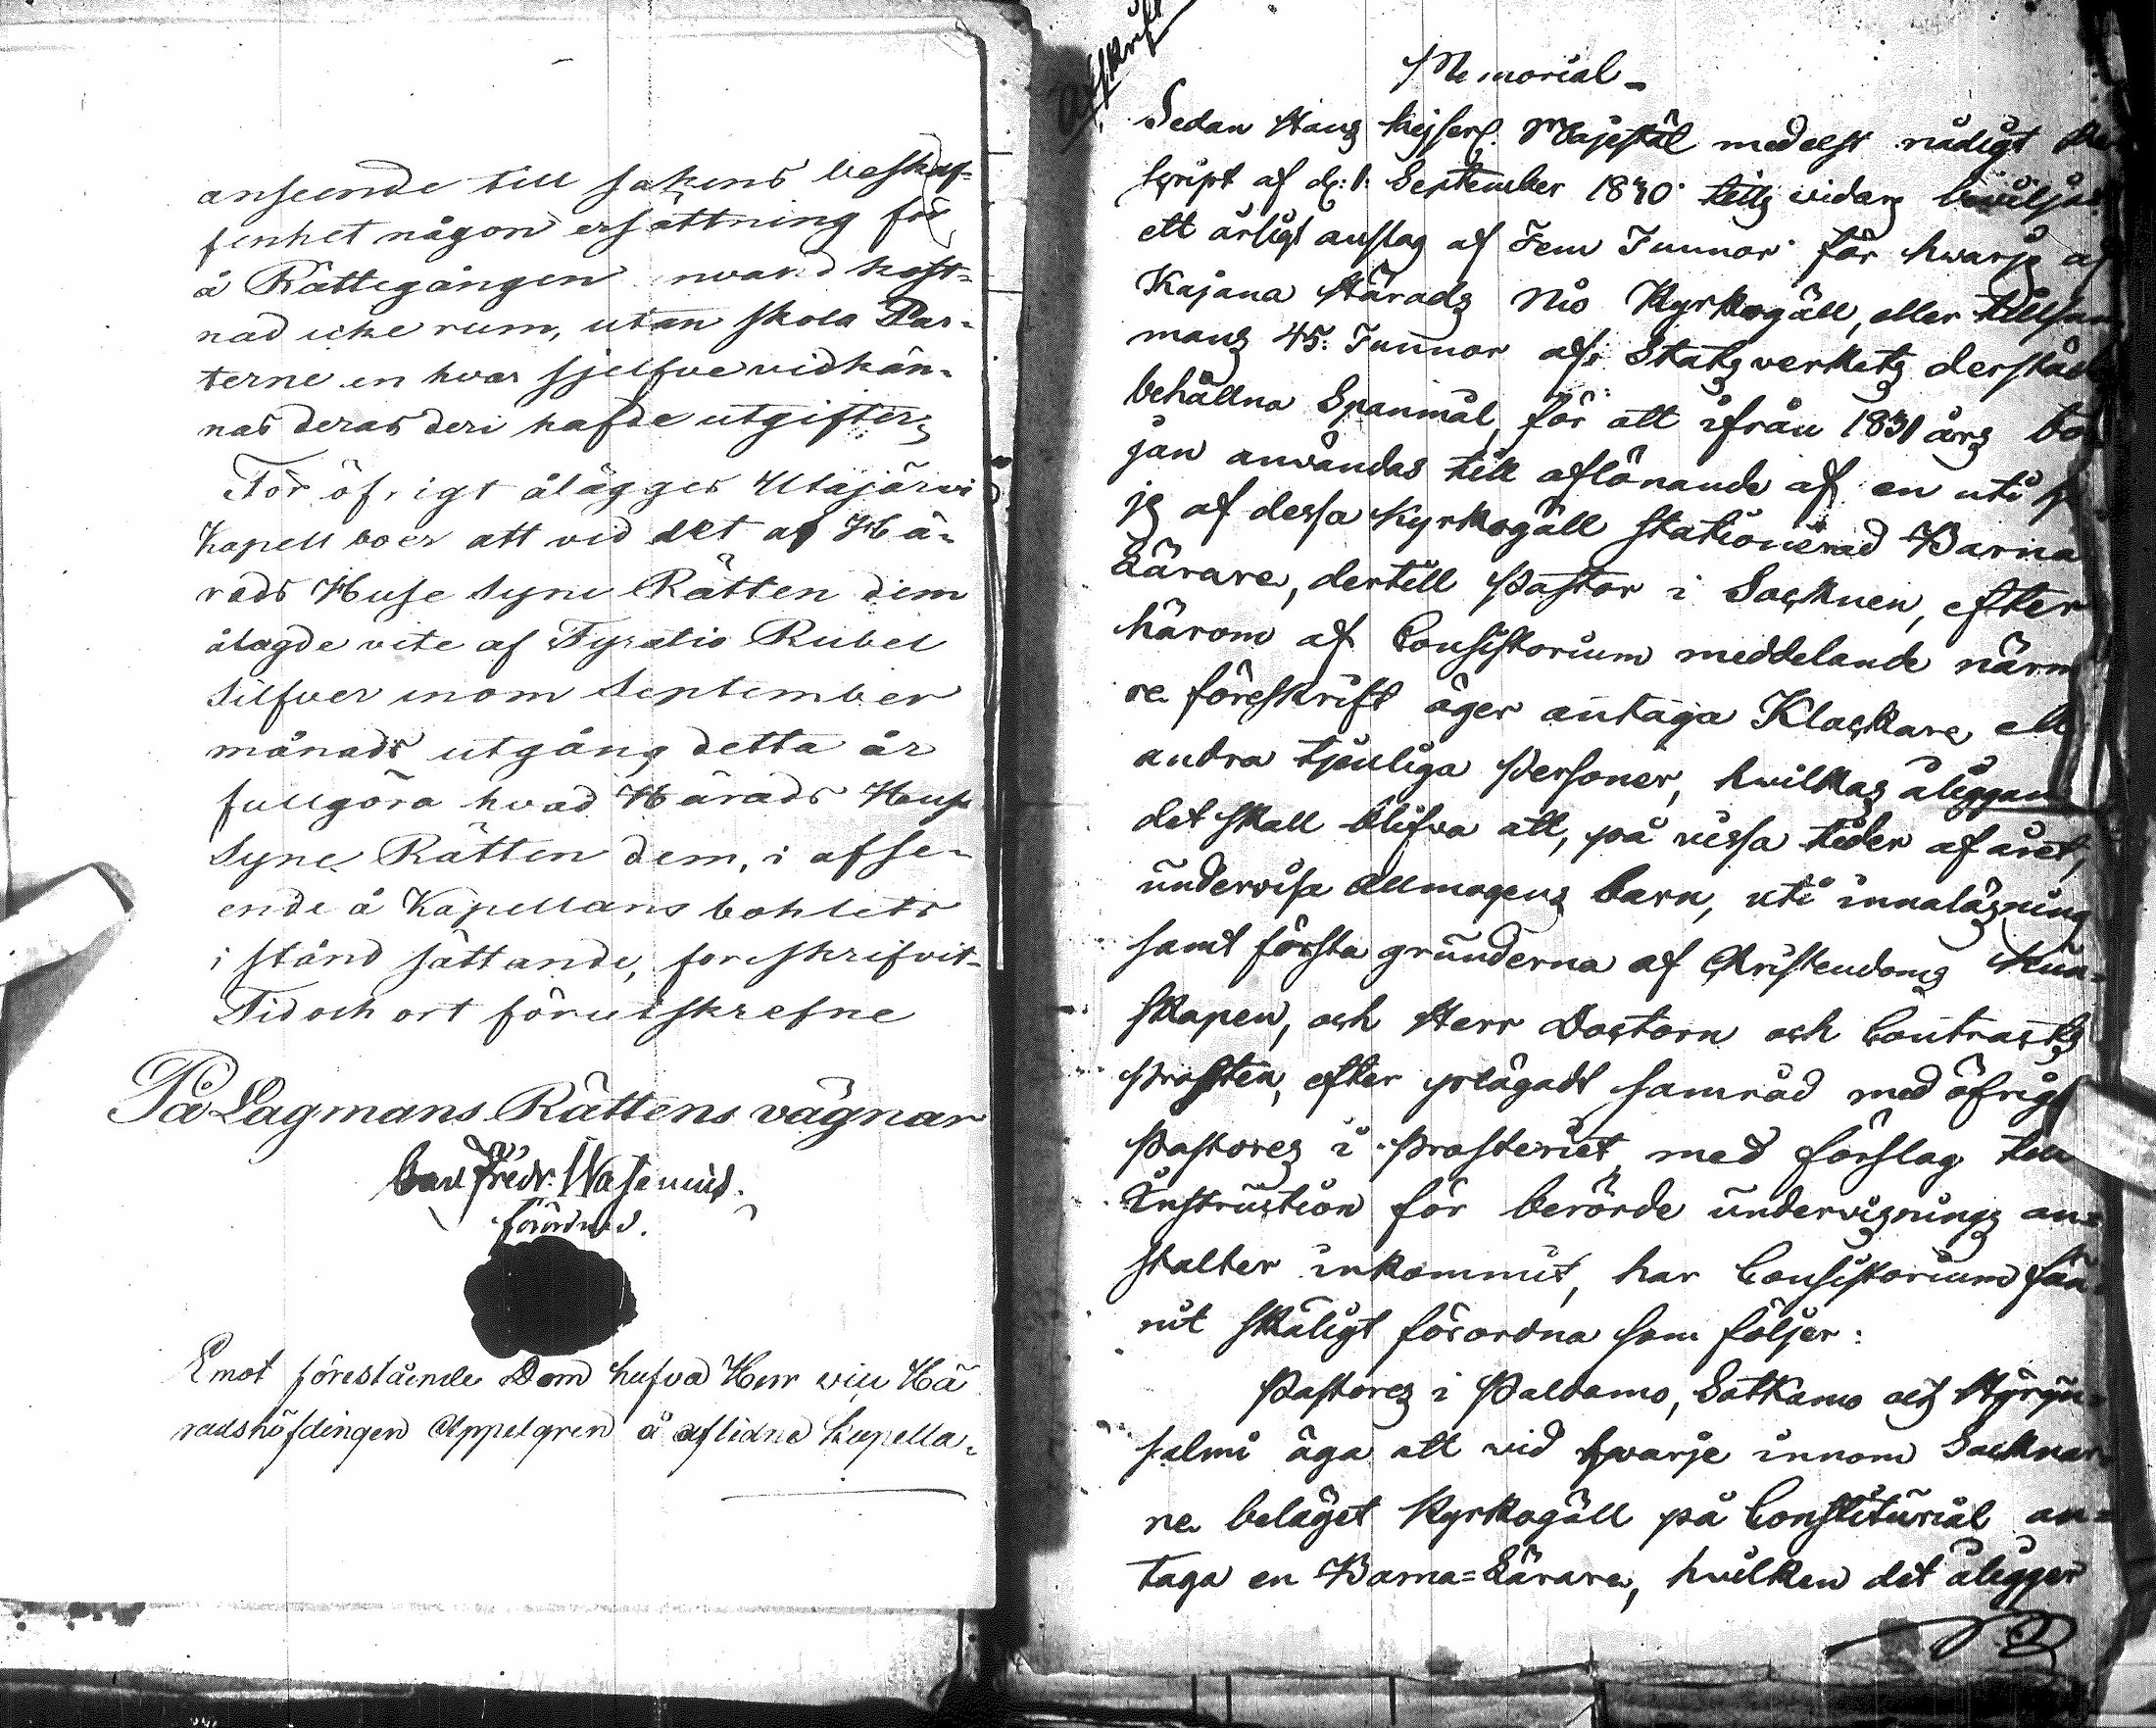 anseende till sakens beskaf-
fenhet någon ersättning för
å Rättegången nvand kost=
nad icke rum, utan skola Par-
terne en hvar sjelfve vidkän-
nas deras deri hafde utgifter;
För öfrigt ålägges Utajärvi
Kapellboer att vid det af Hä-
rads Huse Syne Rätten dem
ålagde vite af Tyratio Rubel
Silfver inom September
månads utgång detta år
fullgöra hvad Härads Huse
Syne Rätten dem, i afse-
ende å Kapellans bohlets
i stånd sättande, foreskrifvit-
Tid och ort förutskrefne
På Lagmans Rättens vägnar
Carl Fredr: Wasenius.
förordnad.
Emot förestående Dom hafva Herr vice Hä
radshöfdingen Appelgren å aflidne Kapella-
Afskrift
Memorial-
Sedan Hans Kejserl. Majestät medelst nådigt Re-
script af d: 1. September 1830 tills vidare beviljat
ett årligt anslag af Fem Tunnor för hwarje af
Kajana Härads Nio Kyrkogäll, eller tillsam-
mans 45: Tunnor af Statsverkets derstädes
behållna Spanmål, för att ifrån 1831 års bör
jan användas till aflönande af en uti
je af dessa Kyrkogäll stationerad Barna
Lärare, dertill Pastor i Socknen, efter
härom af Consistorium meddelande närma
re föreskrift äger antaga Klockare ell
andra tjenliga Personer, hwilkas åliggan
det skall blifva att, på vissa tider af året,
undervisa Allmogens barn, uti innaläsning
samt första grunderna af Christendoms Kun-
skapen, och Herr Doctorn och Contracts
Prosten, efter plägadt samråd med öfrige
Pastores i Prosteriet, med förslag till
Instruction för berörde undervisnings an=
stalter inkommit, har Consistorium fun-
nit skäligt förordna som följer:
Pastores i Paldamo, Sotkamo och Hyryn-
salmi äga att vid hvarje innom Socknar
ne beläget Kyrkogäll på Constitorial an=
taga en Barna=Lärare, hvilken det åligger